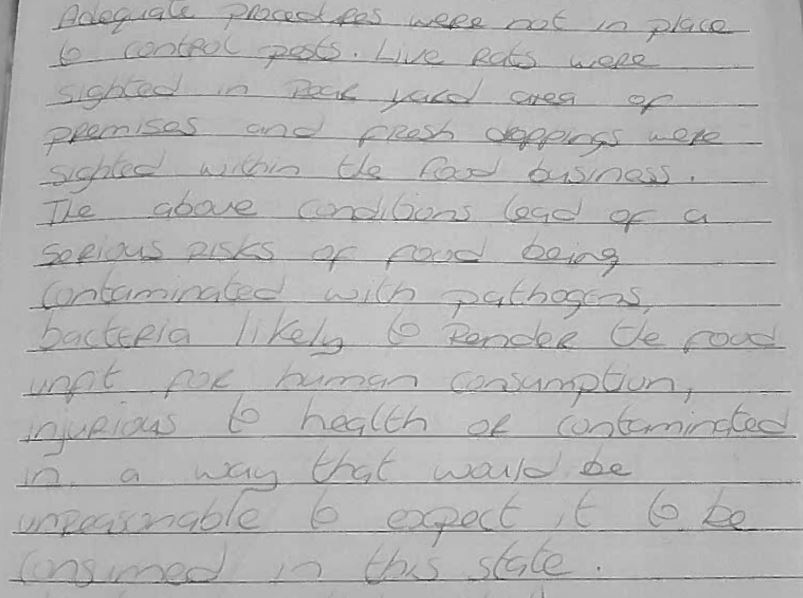 Adequate procedures were not in place
to control pests. Live Rats were
sighted in Rear yard area of
premises and fresh droppings were
sighted within the food business.
The above conditions lead of a
serious risks of food being
contaminated with pathogens,
bacteria likely to Render the food
unfit for human consumption,
injurious to health or contaminated
in a way that would be
unreasonable to expect it to be
consumed in this state.